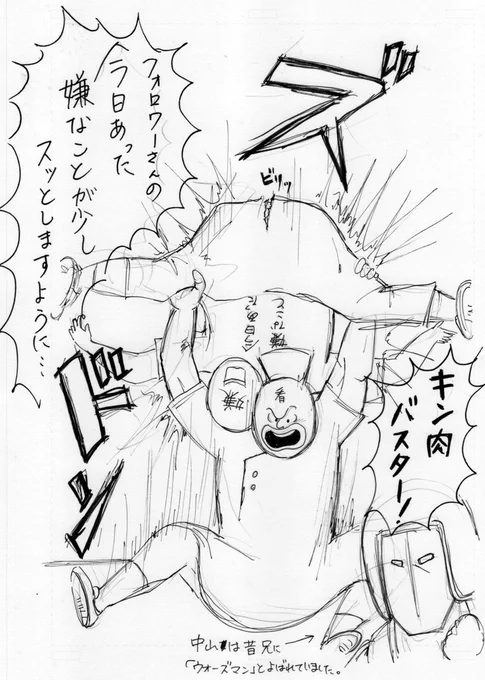 フォロワーさんの
今日あった
嫌なことが少し
スッとしますように…
ズ
ビリッ
今日あった
嫌なこと
嫌
キン肉
バスター!
ドン
中山は昔兄に
「ウォーズマン」とよばれていました。